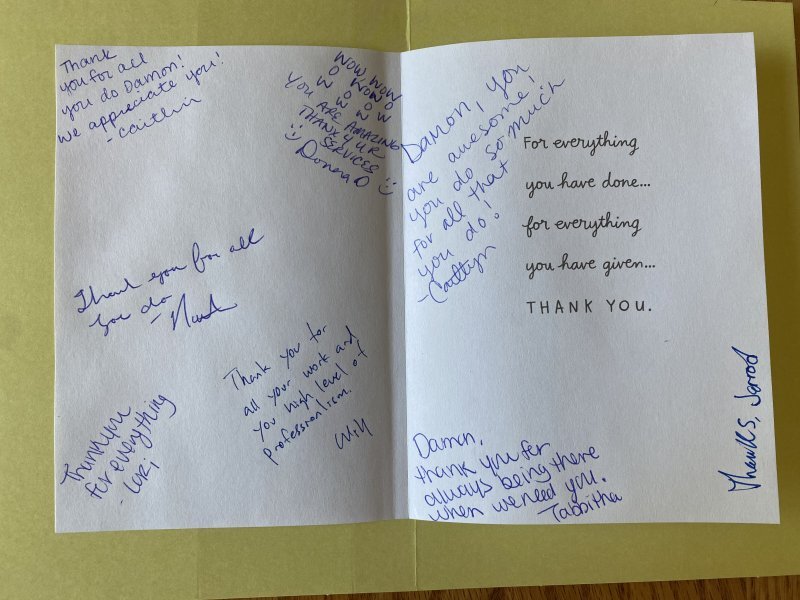 Thank
you for all
you do Damon!
we appreciate you!
- Caitlin
WOW WOW
O WOW O
W O O W
W W W
YOU ARE AMAZING
THANK YOUR
SERVICES
Donna D
Thank you for all
you do
Thank you for
all your work and
you high level of
professionalism.
Will
Thank you
for everything
- Lori
Damon, you
are awesome!
you do so much
for all that
you do!
- Caitlyn
For everything
you have done...
for everything
you have given...
THANK YOU.
Thanks, Jarrod
Damon,
thank you for
always being there
when we need you.
Tabbitha